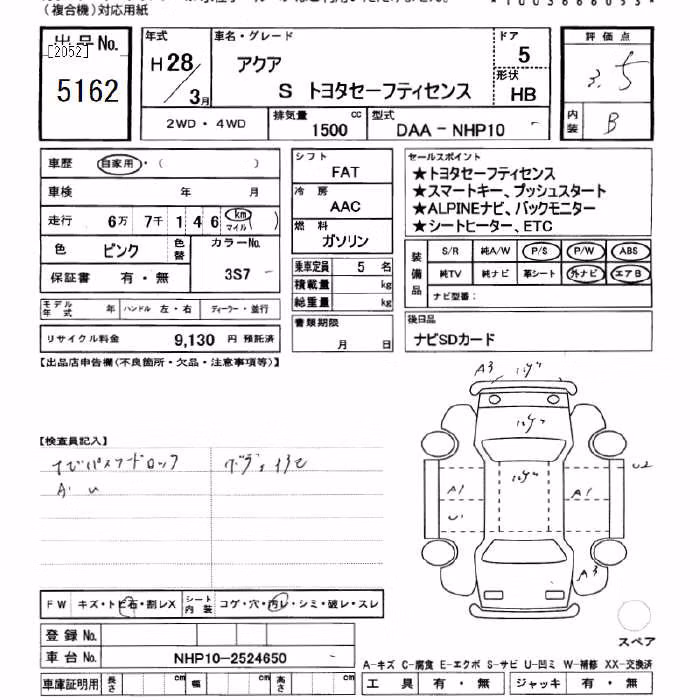 （複合機）対応用紙
出品No.
[2052]
5162
年式
H 28 / 3月
車名・グレード
アクア
S トヨタセーフティセンス
ドア
5
形状
HB
2WD・4WD
排気量 1500 cc
型式 DAA-NHP10 -
評価点
3.5
内装 B
車歴 自家用・( )
車検 年 月
走行 6万 7千 1 4 6 km マイル
色 ピンク 色替 カラーNo.
3S7 -
保証書 有・無
モデル年式 年 ハンドル 左・右 ディーラー・並行
リサイクル料金 9,130 円 預託済
シフト
FAT
冷房
AAC
燃料
ガソリン
乗車定員 5 名
積載量 kg
総重量 kg
書類期限
月 日
セールスポイント
★トヨタセーフティセンス
★スマートキー、プッシュスタート
★ALPINEナビ、バックモニター
★シートヒーター、ETC
装備品
S/R 純A/W P/S P/W ABS
純TV 純ナビ 革シート 外ナビ エアB
ナビ型番：
後日品
ナビSDカード
【出品店申告欄(不良箇所・欠品・注意事項等)】
【検査員記入】
ナビパスワードロック
A・U
A3
A1
U1
A1
U2
A3
FW キズ・トビ石・割レX
シート内装 コゲ・穴・汚レ・シミ・破レ・スレ
登録No.
車台No. NHP10-2524650 -
車庫証明用 長さ cm 幅 cm 高さ cm
スペア
A-キズ C-腐食 E-エクボ S-サビ U-凹ミ W-補修 XX-交換済
工具 有・無 ジャッキ 有・無